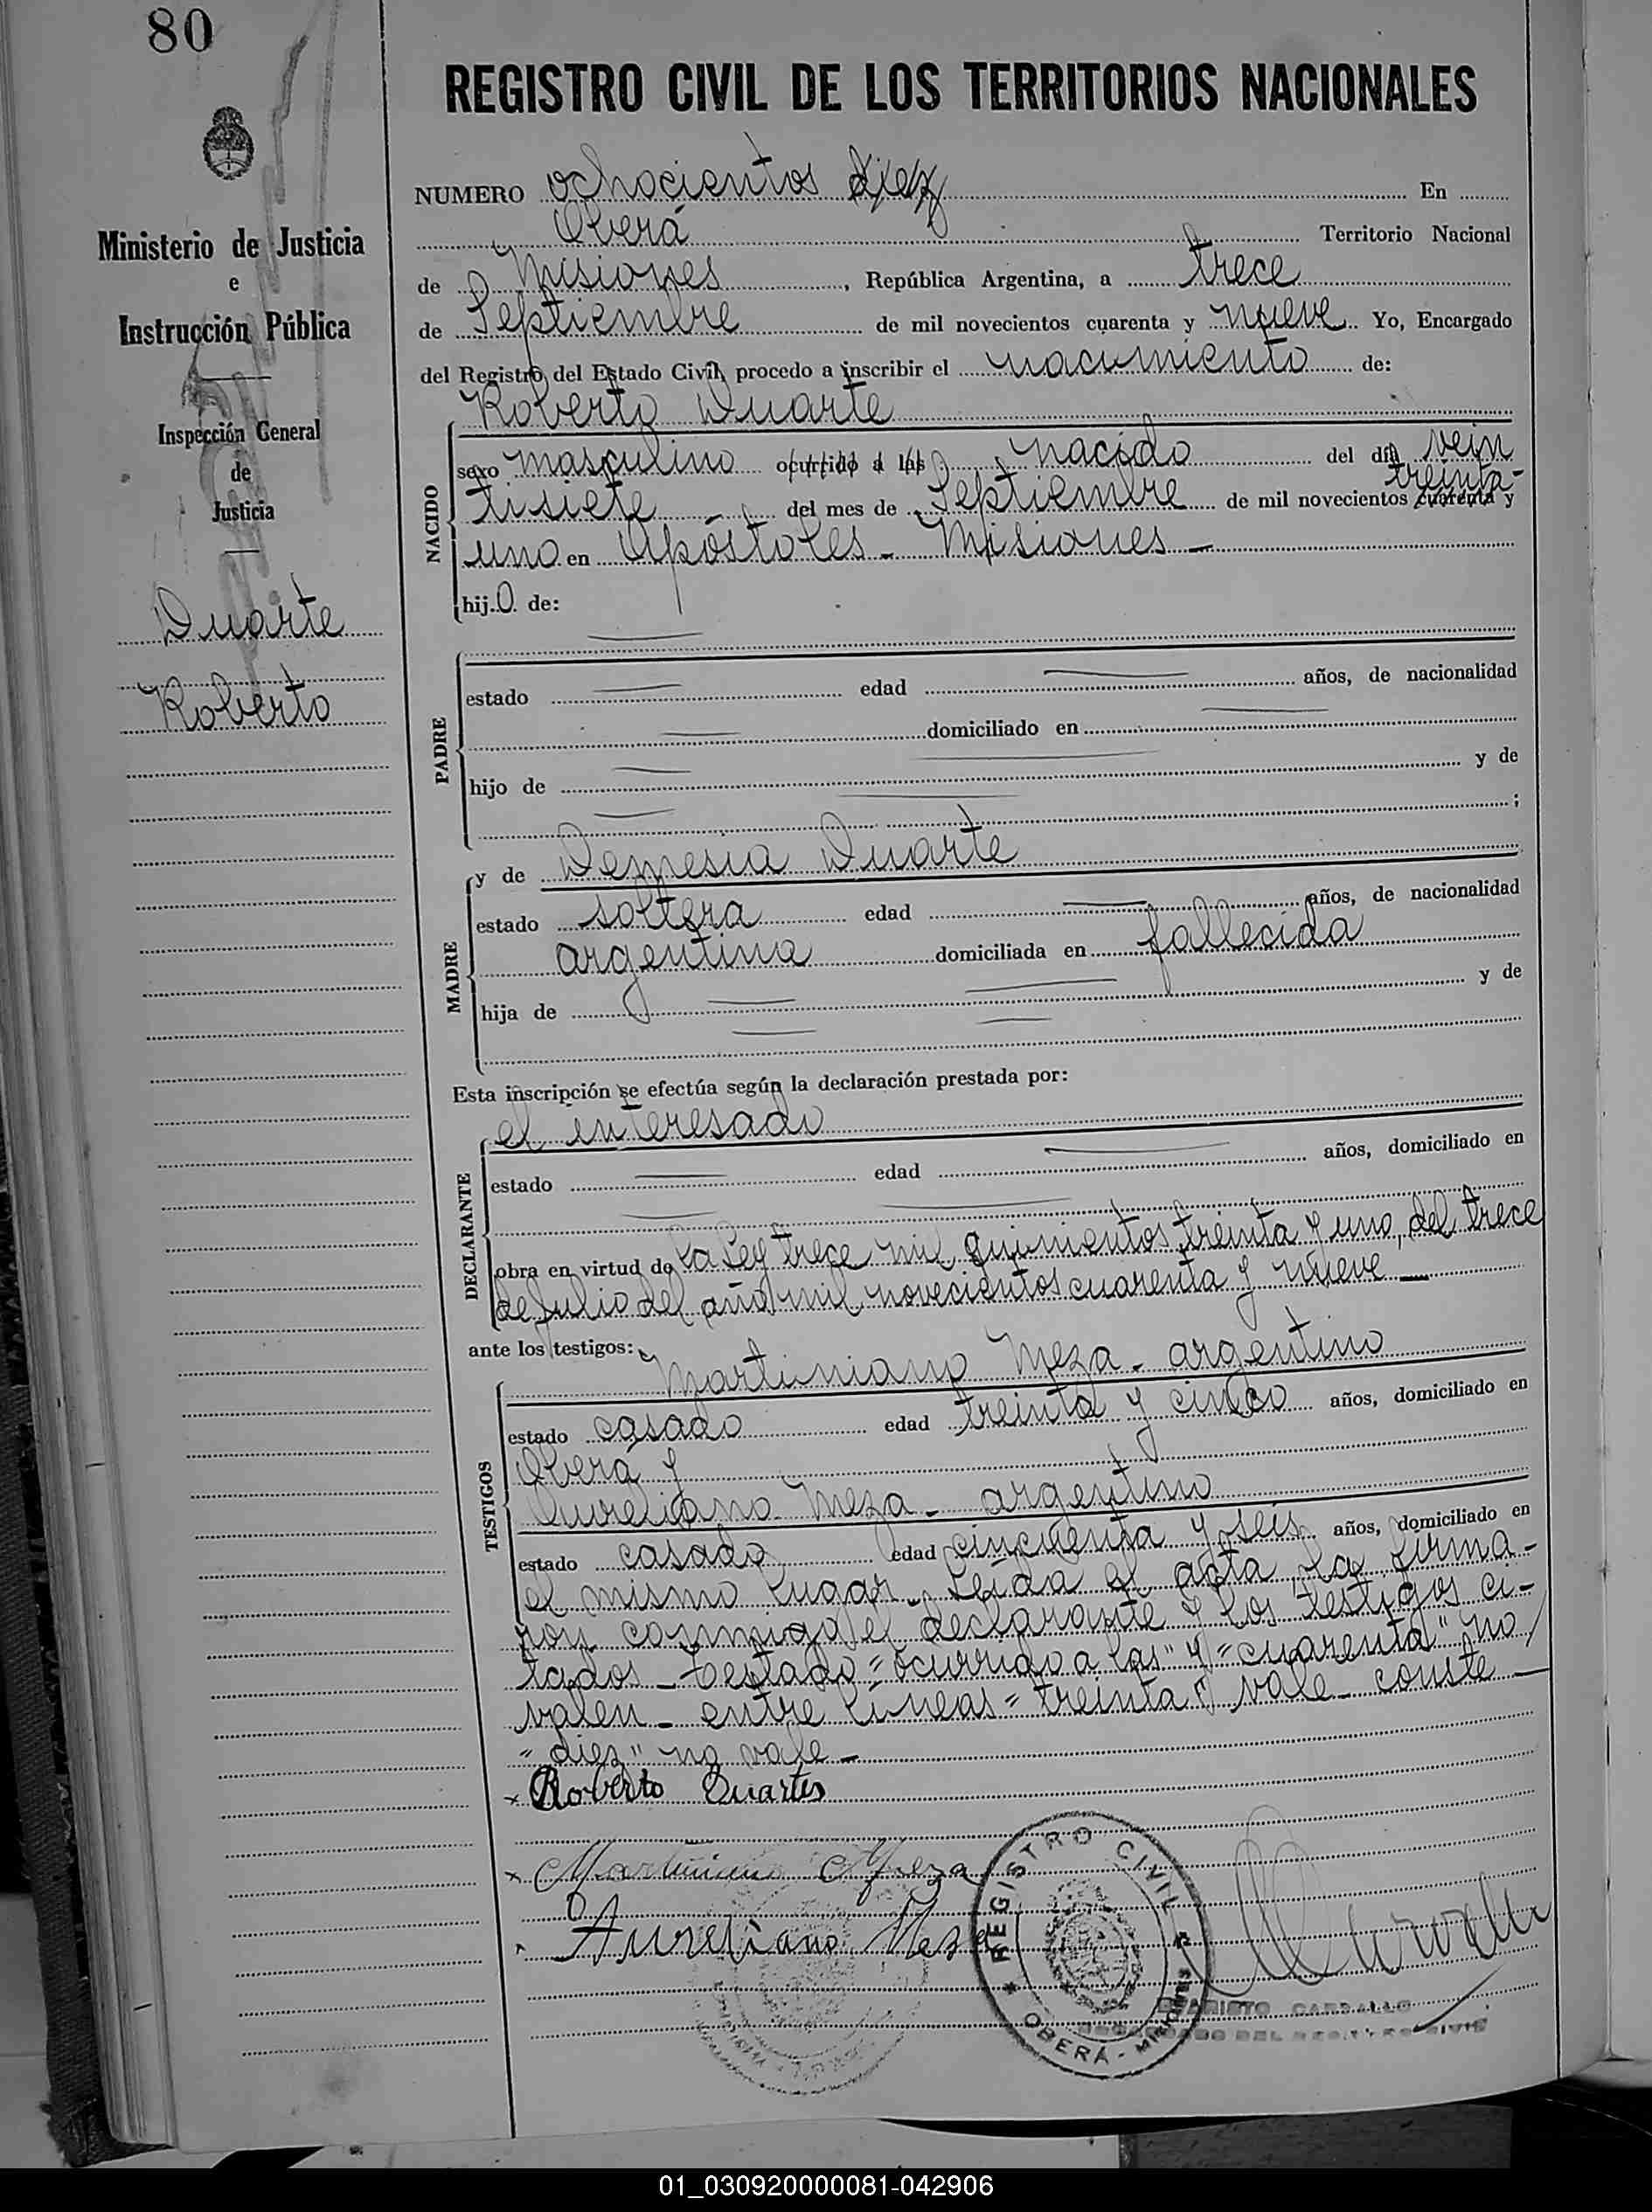 80
REGISTRO CIVIL DE LOS TERRITORIOS NACIONALES
Ministerio de Justicia
e
Instrucción Pública
Inspección General
de
Justicia
Duarte
Roberto
NUMERO ochocientos diez En
Oberá Territorio Nacional
de Misiones, República Argentina, a trece
de Septiembre de mil novecientos cuarenta y nueve Yo, Encargado
del Registro del Estado Civil, procedo a inscribir el nacimiento de:
Roberto Duarte
NACIDO
sexo masculino ocurrido a las nacido del día vein
treinta-
tisiete del mes de Septiembre de mil novecientos cuarenta y
uno en Apóstoles - Misiones -
hijo de:
PADRE
estado edad años, de nacionalidad
domiciliado en
hijo de y de
;
MADRE
y de Demesia Duarte
estado soltera edad años, de nacionalidad
argentina domiciliada en fallecida
hija de y de
Esta inscripción se efectúa según la declaración prestada por:
el interesado
DECLARANTE
estado edad años, domiciliado en
obra en virtud de la Ley trece mil quinientos treinta y uno, del trece
de Julio del año mil novecientos cuarenta y nueve -
ante los testigos:
Martiniano Meza - argentino
TESTIGOS
estado casado edad treinta y cinco años, domiciliado en
Oberá y
Aureliano Meza - argentino
estado casado edad cincuenta y seis años, domiciliado en
el mismo lugar. Leída el acta, la firma-
ron conmigo el declarante y los testigos ci-
tados - testado = "ocurrido a las" y = "cuarenta" no
valen - entre líneas = "treinta" vale - conste -
"diez" no vale -
x Roberto Duartes
x Martiniano Meza
Aureliano Mesa
REGISTRO CIVIL
OBERÁ - MISIONES
EVARISTO CARBALLO
ENCARGADO DEL REGISTRO CIVIL
01_030920000081-042906